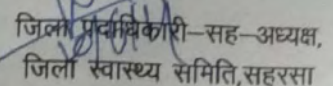 जिला पदाधिकारी–सह–अध्यक्ष,
जिला स्वास्थ्य समिति,सहरसा